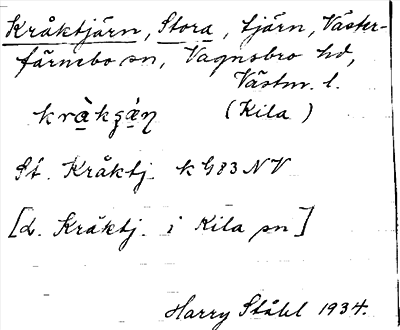 Kråktjärn, Stora, tjärn, Väster-
färnebo sn, Vagnsbro hd,
Västm. l.
(Kila)
St. Kråktj. k G83 NV
[L. Kråktj. i Kila sn]
Harry Ståhl 1934.